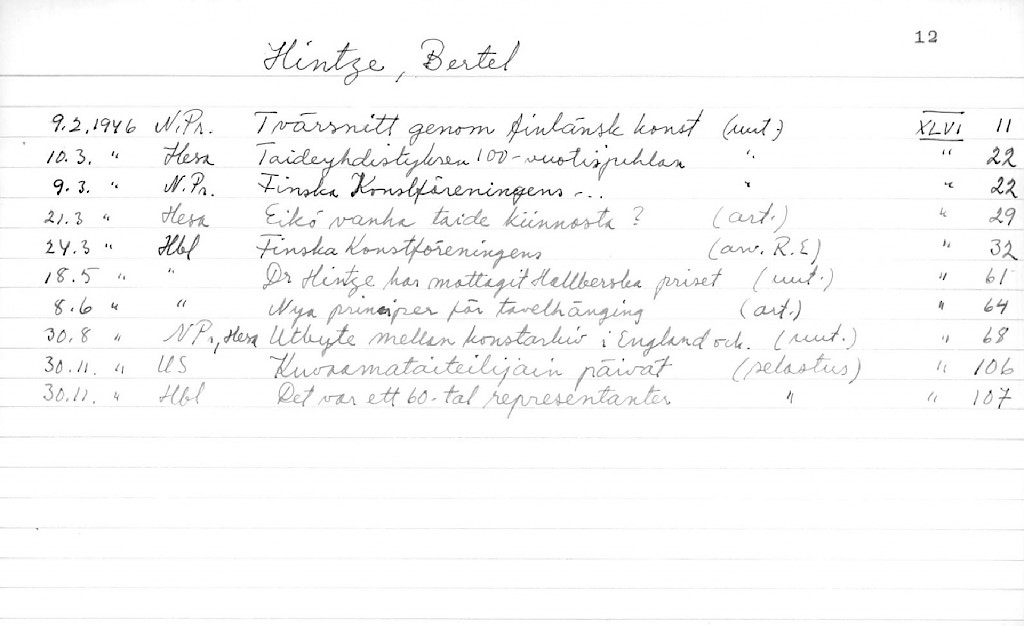 12
Hintze, Bertel
9.2.1946 N.Pr. Tvärsnitt genom finländsk konst (uut.) XLVI 11
10.3. " Hesa Taideyhdistyksen 100-vuotisjuhlan " " 22
9.3. " N.Pr. Finska Konstföreningens -.. " " 22
21.3 " Hesa Eikö vanha taide kiinnosta? (art.) " 29
24.3 " Hbl Finska Konstföreningens (arv. R.E) " 32
18.5 " " Dr Hintze har mottagit Hallberska priset (uut.) " 61
8.6 " " Nya principer för tavelhänging (art.) " 64
30.8 " N Pr, Hesa Utbyte mellan konstarkiv i England och. (uut.) " 68
30.11. " US Kuvaamataiteilijain päivät (selostus) " 106
30.11. " Hbl Det var ett 60-tal representanter " " 107